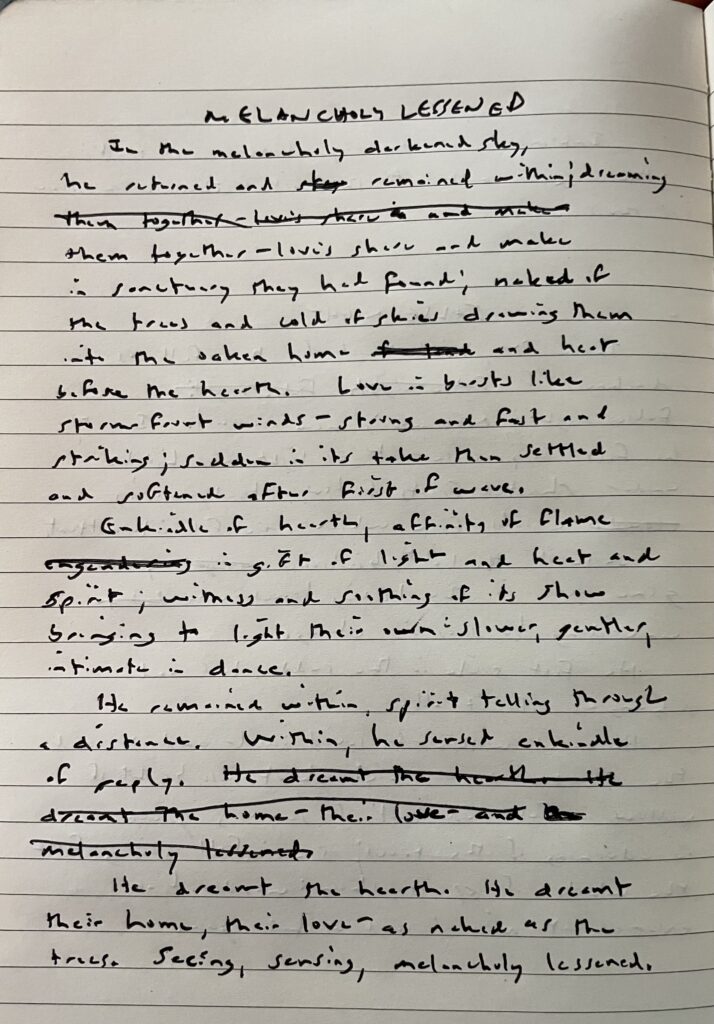 MELANCHOLY LESSENED
In the melancholy darkened sky,
he returned and remained within; dreaming
them together - love's share is and make
them together - love's share and make
in sanctuary they had found; naked of
the trees and cold of skies drawing them
into the oaken home and heat
before the hearth. Love in bursts like
storm front winds - strong and fast and
striking; sudden in its take then settled
and softened after first of wave.
Enkindle of hearth, affinity of flame
engendering in gift of light and heat and
spirit; witness and soothing of its show
bringing to light their own: slower, gentler,
intimate in dance.
He remained within, spirit telling through
a distance. Within, he sensed enkindle
of reply. He dreamt the hearth. He
dreamt the home - their love - and
melancholy lessened.
He dreamt the hearth. He dreamt
their home, their love - as naked as the
trees. Seeing, sensing, melancholy lessened.